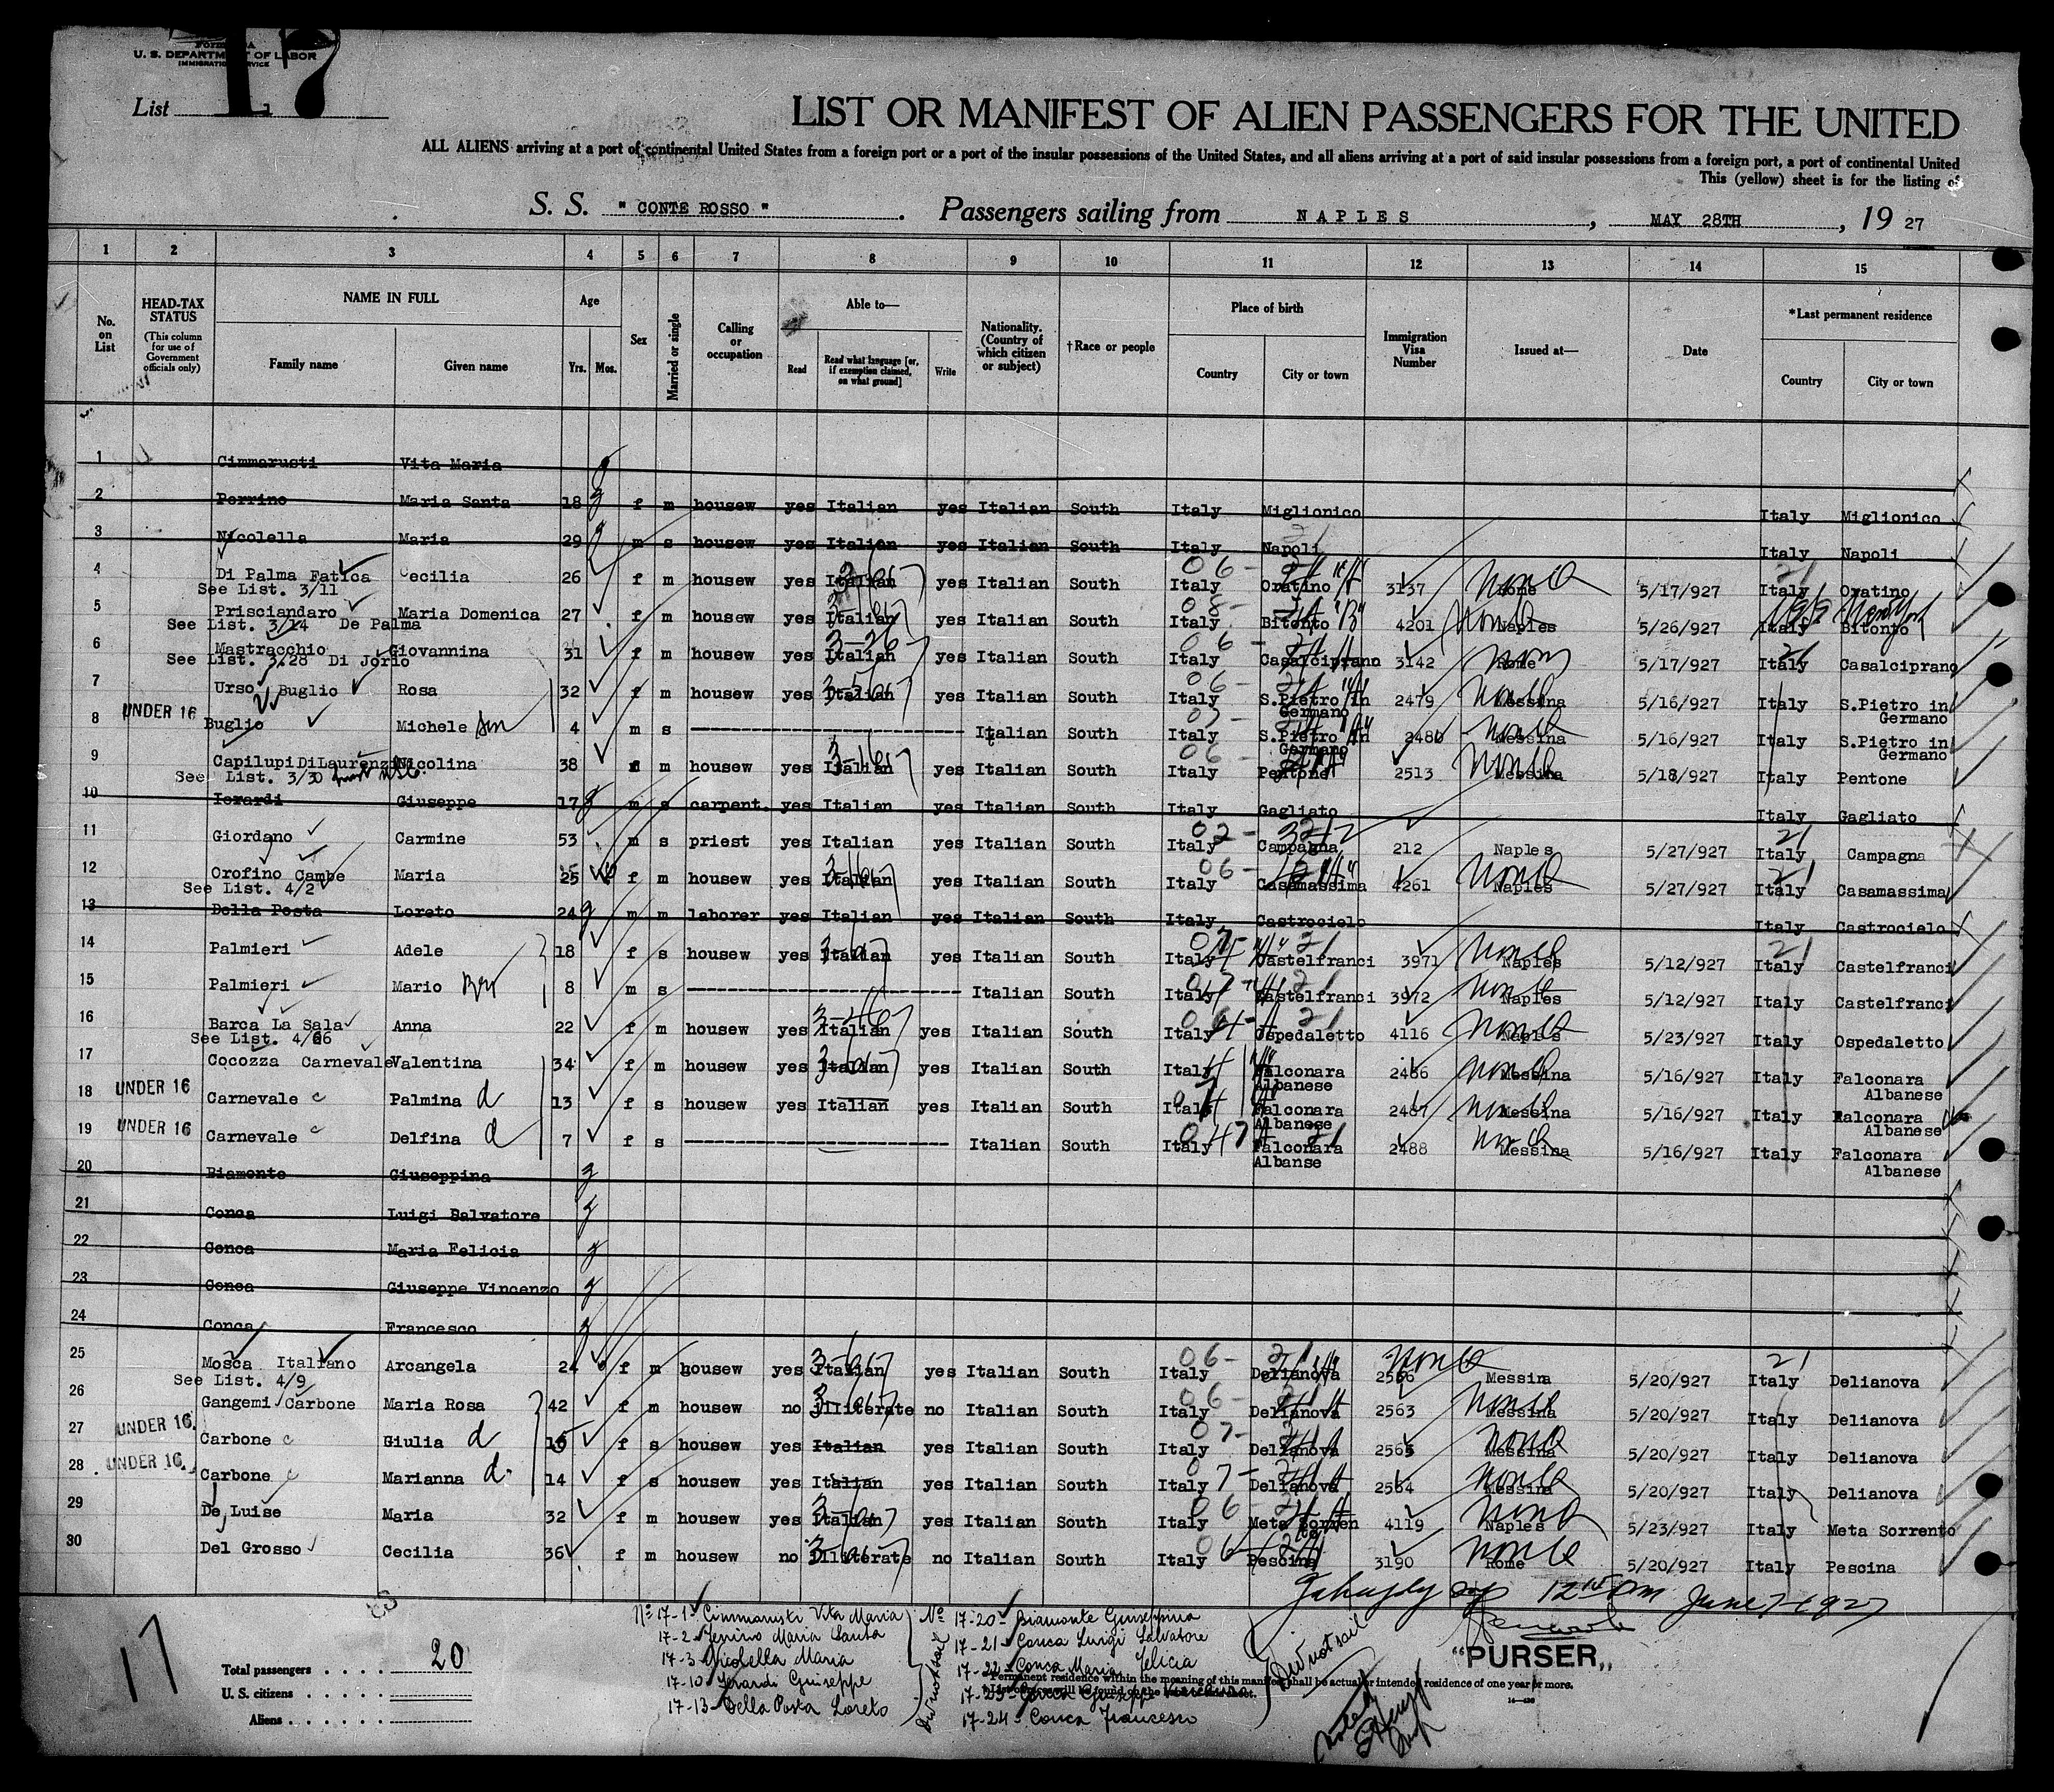 17
U. S. DEPARTMENT OF LABOR
IMMIGRATION SERVICE
List
LIST OR MANIFEST OF ALIEN PASSENGERS FOR THE UNITED
ALL ALIENS arriving at a port of continental United States from a foreign port or a port of the insular possessions of the United States, and all aliens arriving at a port of said insular possessions from a foreign port, a port of continental United
This (yellow) sheet is for the listing of
S. S. " CONTE ROSSO " . Passengers sailing from NAPLES , MAY 28TH , 19 27
1 2 3 4 5 6 7 8 9 10 11 12 13 14 15
No. on List HEAD-TAX STATUS (This column for use of Government officials only) NAME IN FULL Family name Given name Age Yrs. Mos. Sex Married or single Calling or occupation Able to— Read Read what language [or, if exemption claimed, on what ground] Write Nationality. (Country of which citizen or subject) †Race or people Place of birth Country City or town Immigration Visa Number Issued at— Date *Last permanent residence Country City or town
1 Cimmarusti Vita Maria
2 Perrino Maria Santa 18 f m housew yes Italian yes Italian South Italy Miglionico Italy Miglionico
3 Nicolella Maria 29 m s housew yes Italian yes Italian South Italy Napoli Italy Napoli
4 Di Palma Fatica Cecilia 26 f m housew yes Italian yes Italian South Italy Oratino 3137 Rome 5/17/927 Italy Oratino
See List. 3/11
5 Prisciandaro Maria Domenica 27 f m housew yes Italian yes Italian South Italy Bitonto 4201 Naples 5/26/927 Italy Bitonto
See List. 3/14 De Palma
6 Mastracchio Giovannina 31 f m housew yes Italian yes Italian South Italy Casalciprano 3142 Rome 5/17/927 Italy Casalciprano
See List. 3/28 Di Jorio
7 Urso Buglio Rosa 32 f m housew yes Italian yes Italian South Italy S.Pietro in Germano 2479 Messina 5/16/927 Italy S.Pietro in Germano
8 UNDER 16 Buglio Michele son 4 m s Italian South Italy S.Pietro in Germano 2480 Messina 5/16/927 Italy S.Pietro in Germano
9 Capilupi Di Laurenzo Nicolina 38 f m housew yes Italian yes Italian South Italy Pentone 2513 Messina 5/18/927 Italy Pentone
See List. 3/30
10 Ierardi Giuseppe 17 m s carpent. yes Italian yes Italian South Italy Gagliato Italy Gagliato
11 Giordano Carmine 53 m s priest yes Italian yes Italian South Italy Campagna 212 Naples 5/27/927 Italy Campagna
12 Orofino Cambe Maria 25 f m housew yes Italian yes Italian South Italy Casamassima 4261 Naples 5/27/927 Italy Casamassima
See List. 4/2
13 Della Posta Loreto 24 m m laborer yes Italian yes Italian South Italy Castrocielo Italy Castrocielo
14 Palmieri Adele 18 f s housew yes Italian yes Italian South Italy Castelfranci 3971 Naples 5/12/927 Italy Castelfranci
15 Palmieri Mario 8 m s Italian South Italy Castelfranci 3972 Naples 5/12/927 Italy Castelfranci
16 Barca La Sala Anna 22 f m housew yes Italian yes Italian South Italy Ospedaletto 4116 Naples 5/23/927 Italy Ospedaletto
See List.
17 Cocozza Carnevale Valentina 34 f m housew yes Italian yes Italian South Italy Falconara Albanese 2486 Messina 5/16/927 Italy Falconara Albanese
18 UNDER 16 Carnevale Palmina d 13 f s housew yes Italian yes Italian South Italy Falconara Albanese 2487 Messina 5/16/927 Italy Falconara Albanese
19 UNDER 16 Carnevale Delfina d 7 f s Italian South Italy Falconara Albanse 2488 Messina 5/16/927 Italy Falconara Albanese
20 Biamonte Giuseppina
21 Conca Luigi Salvatore
22 Conca Maria Felicia
23 Conca Giuseppe Vincenzo
24 Conca Francesco
25 Mosca Italiano Arcangela 24 f m housew yes Italian yes Italian South Italy Delianova 2566 Messina 5/20/927 Italy Delianova
See List. 4/9
26 Gangemi Carbone Maria Rosa 42 f m housew no illiterate no Italian South Italy Delianova 2563 Messina 5/20/927 Italy Delianova
27 UNDER 16 Carbone Giulia d 15 f s housew yes Italian yes Italian South Italy Delianova 2565 Messina 5/20/927 Italy Delianova
28 UNDER 16 Carbone Marianna d 14 f s housew yes Italian yes Italian South Italy Delianova 2564 Messina 5/20/927 Italy Delianova
29 De Luise Maria 32 f m housew yes Italian yes Italian South Italy Meta Sorren 4119 Naples 5/23/927 Italy Meta Sorrento
30 Del Grosso Cecilia 36 f m housew no Illiterate no Italian South Italy Pescina 3190 Rome 5/20/927 Italy Pescina
12 PM June 7-1927
Nº 17-1- Cimmarusti Vita Maria
17-2- Perrino Maria Santa
17-3 Nicolella Maria
17-10- Ierardi Giuseppe
17-13- Della Posta Loreto
Did not sail
Nº 17-20- Biamonte Giuseppina
17-21- Conca Luigi Salvatore
17-22- Conca Maria Felicia
17-23- Conca
17-24- Conca Francesco
Did not sail
"PURSER"
17
Total passengers . . . . 20
U. S. citizens . . . . .
Aliens . . . . .
*Permanent residence within the meaning of this manifest shall be actual or intended residence of one year or more.